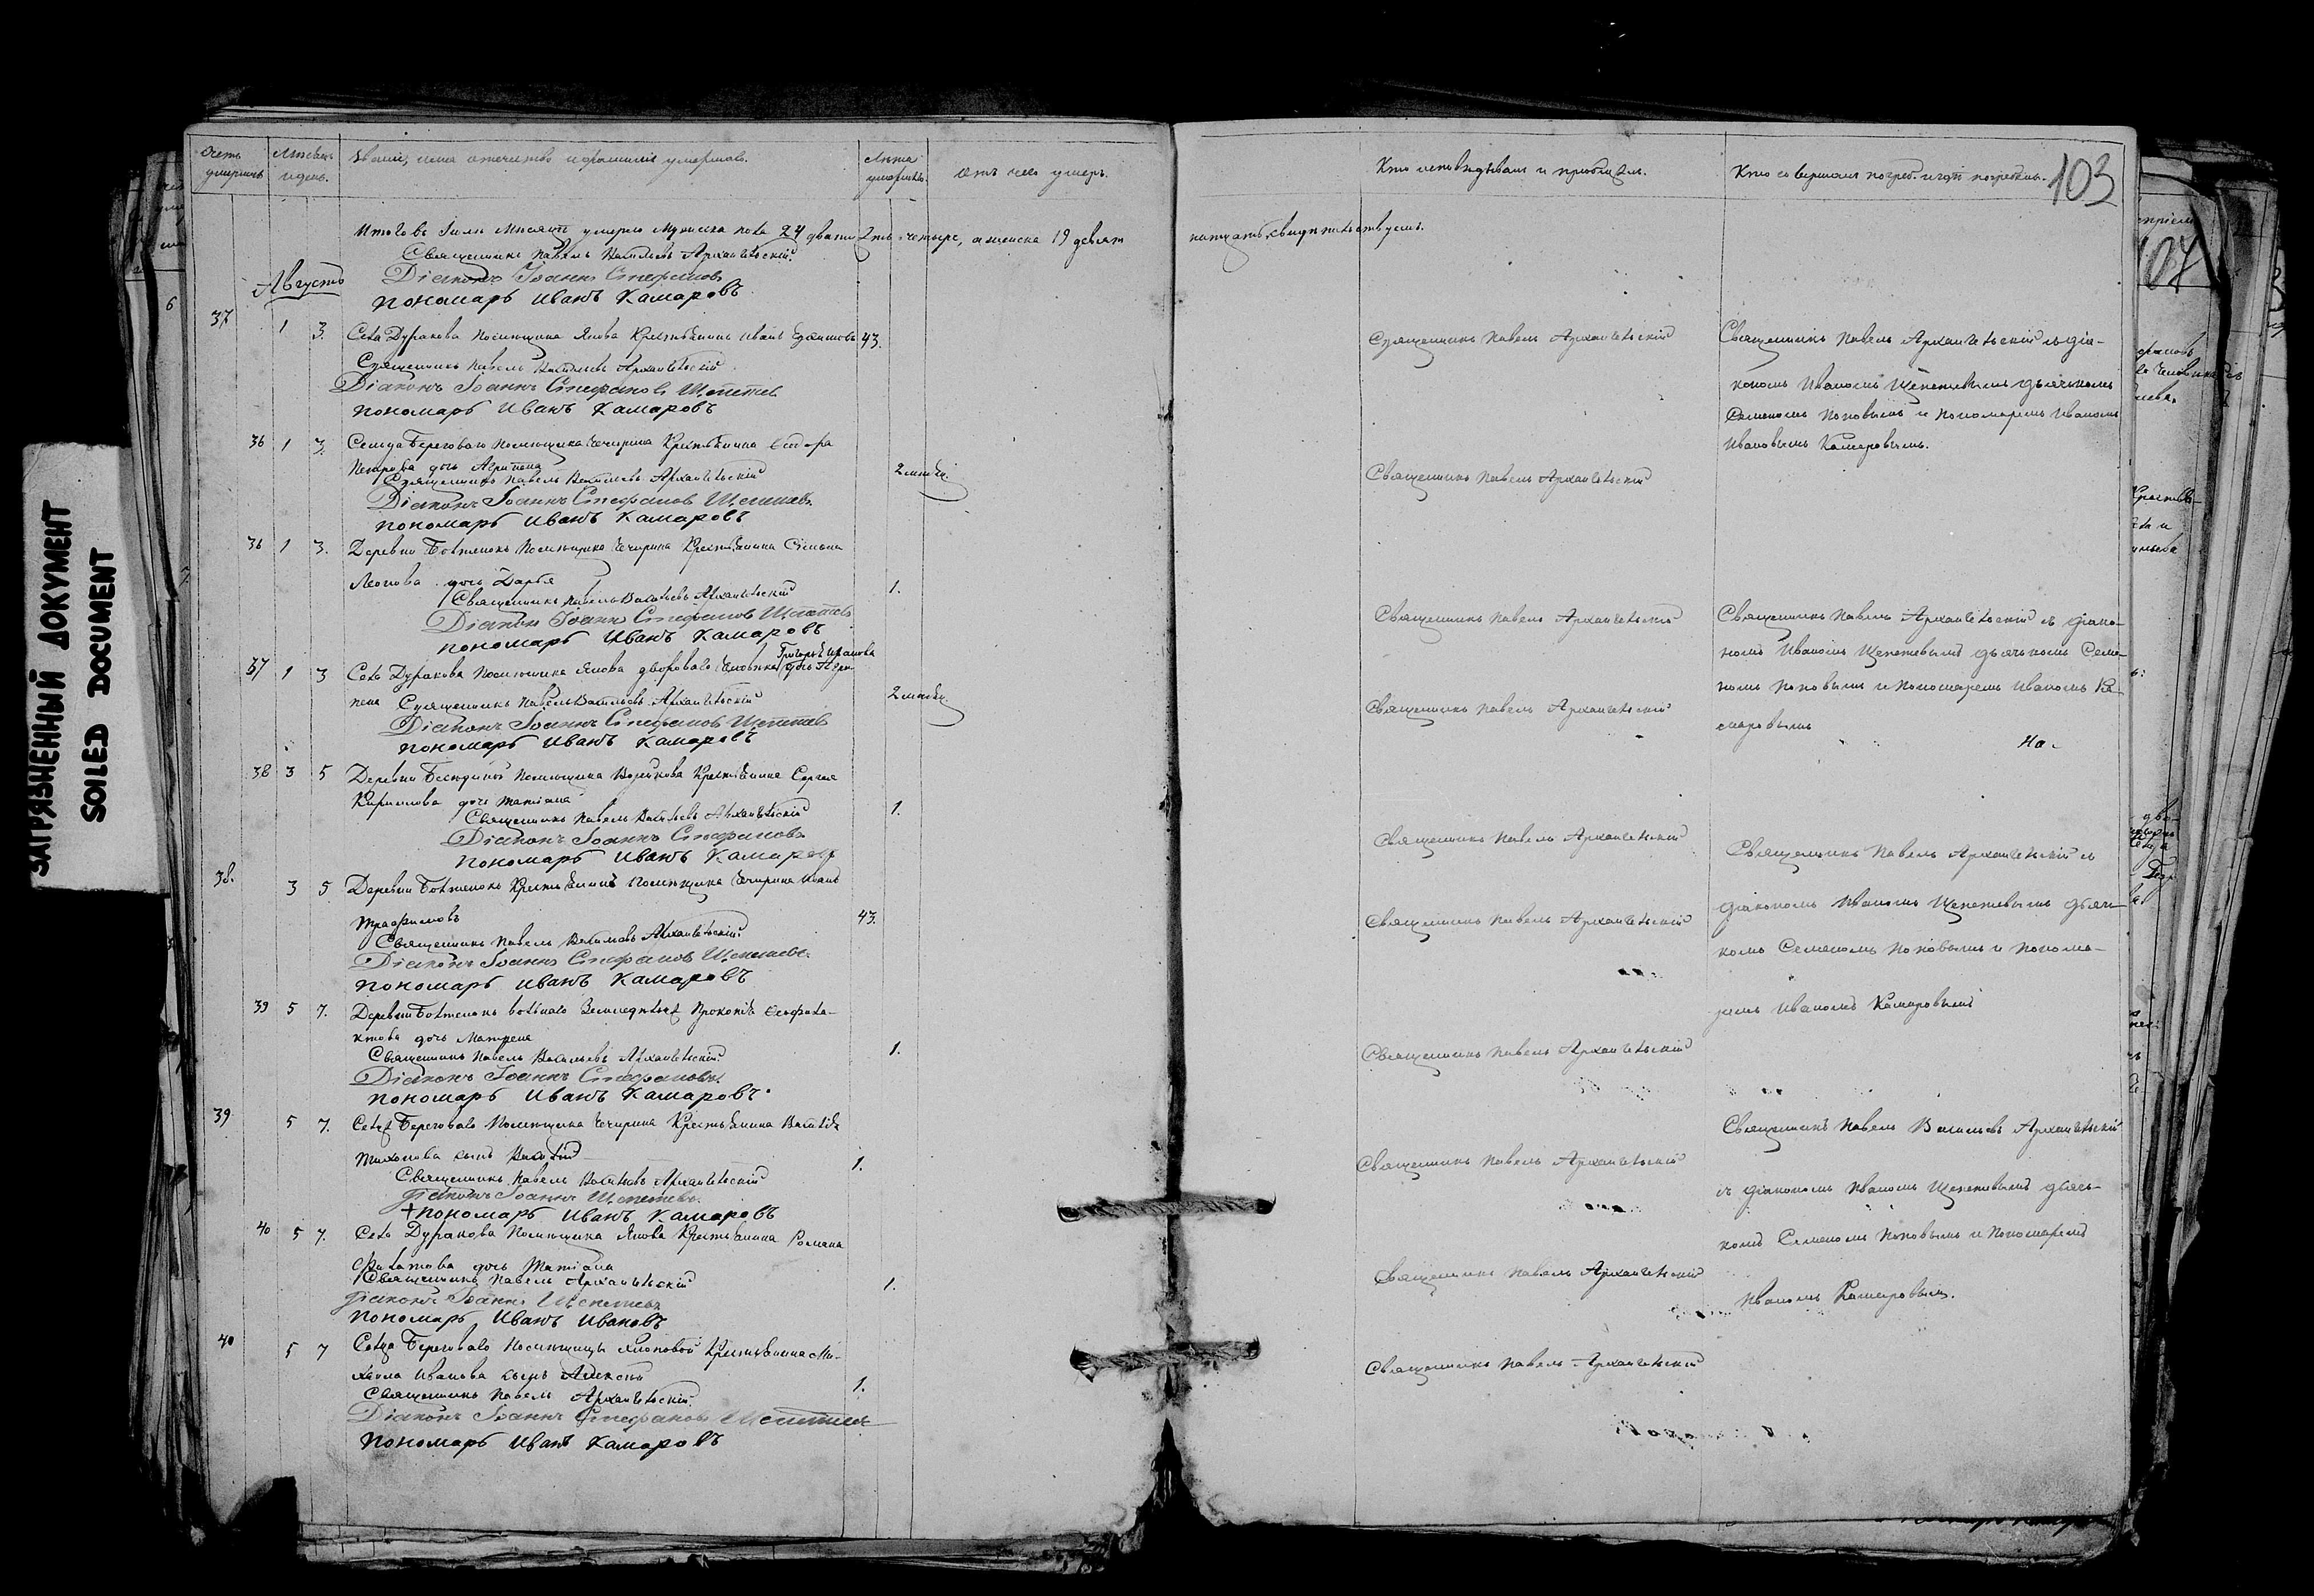 ЗАГРЯЗНЕННЫЙ ДОКУМЕНТ
SOILED DOCUMENT
Счетъ умершихъ
Мѣсяцъ и день.
Званіе, имя отечество и фамилія умершаго.
Лѣта умершаго.
Отъ чего умеръ.
Кто исповѣдывалъ и пріобщалъ.
Кто совершалъ погреб. и гдѣ погребены.
103
Итого въ Іюлѣ Мѣсяцѣ умерло Мужеска пола 24 двадцать четыре, а женска 19 девятнатцать, свидѣтельствуемъ.
Священникъ Павелъ Васильевъ Архангельскій
Діаконъ Іоаннъ Стефановъ
Пономарь Иванъ Камаровъ
Августъ
37 1 3. Села Дуракова Помѣщика Янова Крестьянинъ Иванъ 43.
Священникъ Павелъ Васильевъ Архангельскій
Діаконъ Іоаннъ Стефановъ Щепетевъ
Пономарь Иванъ Камаровъ
Священникъ Павелъ Архангельскій
Священникъ Павелъ Архангельскій съ діа-
кономъ Иваномъ Щепетевымъ дьячкомъ
Семеномъ Поповымъ и Пономаремъ Иваномъ
Ивановымъ Камаровымъ.
36 1 3. Сельца Береговаго Помѣщика Чичирина Крестьянина
Петрова дочь Агрипена 2 мѣсяц.
Священникъ Павелъ Васильевъ Архангельскій
Діаконъ Іоаннъ Стефановъ Щепетевъ
Пономарь Иванъ Камаровъ
Священникъ Павелъ Архангельскій
36 1 3. Деревни Помѣщика Чичирина Крестьянина Симона
Леонова дочь Дарья 1.
Священникъ Павелъ Васильевъ Архангельскій
Діаконъ Іоаннъ Стефановъ Щепетевъ
Пономарь Иванъ Камаровъ
Священникъ Павелъ Архангельскій
Священникъ Павелъ Архангельскій съ діако-
номъ Иваномъ Щепетевымъ дьячкомъ Семе-
номъ Поповымъ и Пономаремъ Иваномъ Ка-
маровымъ
37 1 3 Села Дуракова Помѣщика Янова двороваго человѣка Григорья Иванова дочь Агри-
пена 2 мѣсяц.
Священникъ Павелъ Васильевъ Архангельскій
Діаконъ Іоаннъ Стефановъ Щепетевъ
Пономарь Иванъ Камаровъ
Священникъ Павелъ Архангельскій
38 3 5 Деревни Помѣщика Воейкова Крестьянина Сергея
Кирилова дочь Татіана 1.
Священникъ Павелъ Васильевъ Архангельскій
Діаконъ Іоаннъ Стефановъ
Пономарь Иванъ Камаровъ
Священникъ Павелъ Архангельскій
Священникъ Павелъ Архангельскій съ
діакономъ Иваномъ Щепетевымъ дьяч-
комъ Семеномъ Поповымъ и Понома-
ремъ Иваномъ Камаровымъ
38. 3 5 Деревни Крестьянинъ Помѣщика Чичирина Иванъ
Трафимовъ 43.
Священникъ Павелъ Васильевъ Архангельскій
Діаконъ Іоаннъ Стефановъ Щепетевъ
Пономарь Иванъ Камаровъ
Священникъ Павелъ Архангельскій
39 5 7. Деревни вольнаго Земледѣльца Прокопія Феофила-
ктова дочь Матрена 1.
Священникъ Павелъ Васильевъ Архангельскій
Діаконъ Іоаннъ Стефановъ
Пономарь Иванъ Камаровъ
Священникъ Павелъ Архангельскій
39 5 7. Сельца Береговаго Помѣщика Чичирина Крестьянина Василія
Тихонова сынъ Василій 1.
Священникъ Павелъ Васильевъ Архангельскій
Діаконъ Іоаннъ Щепетевъ
Пономарь Иванъ Камаровъ
Священникъ Павелъ Архангельскій
Священникъ Павелъ Васильевъ Архангельскій
съ діакономъ Иваномъ Щепетевымъ дьяч-
комъ Семеномъ Поповымъ и Пономаремъ
Иваномъ Камаровымъ.
40 5 7. Села Дуракова Помѣщика Янова Крестьянина Романа
Филатова дочь Татіана 1.
Священникъ Павелъ Архангельскій
Діаконъ Іоаннъ Щепетевъ
Пономарь Иванъ Ивановъ
Священникъ Павелъ Архангельскій
40 5 7 Сельца Береговаго Помѣщицы Крестьянина Ми-
хаила Иванова сынъ Алексѣй 1.
Священникъ Павелъ Архангельскій
Діаконъ Іоаннъ Стефановъ Щепетевъ
Пономарь Иванъ Камаровъ
Священникъ Павелъ Архангельскій